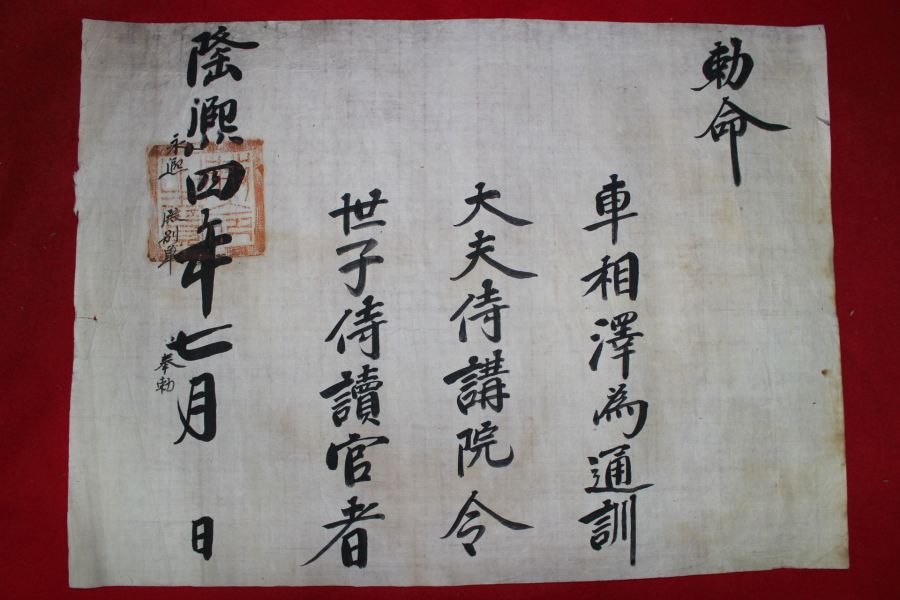 勅命
車相澤為通訓
大夫侍講院令
世子侍讀官者
隆熙四年七月 日
永熙 殿別單
奉勅